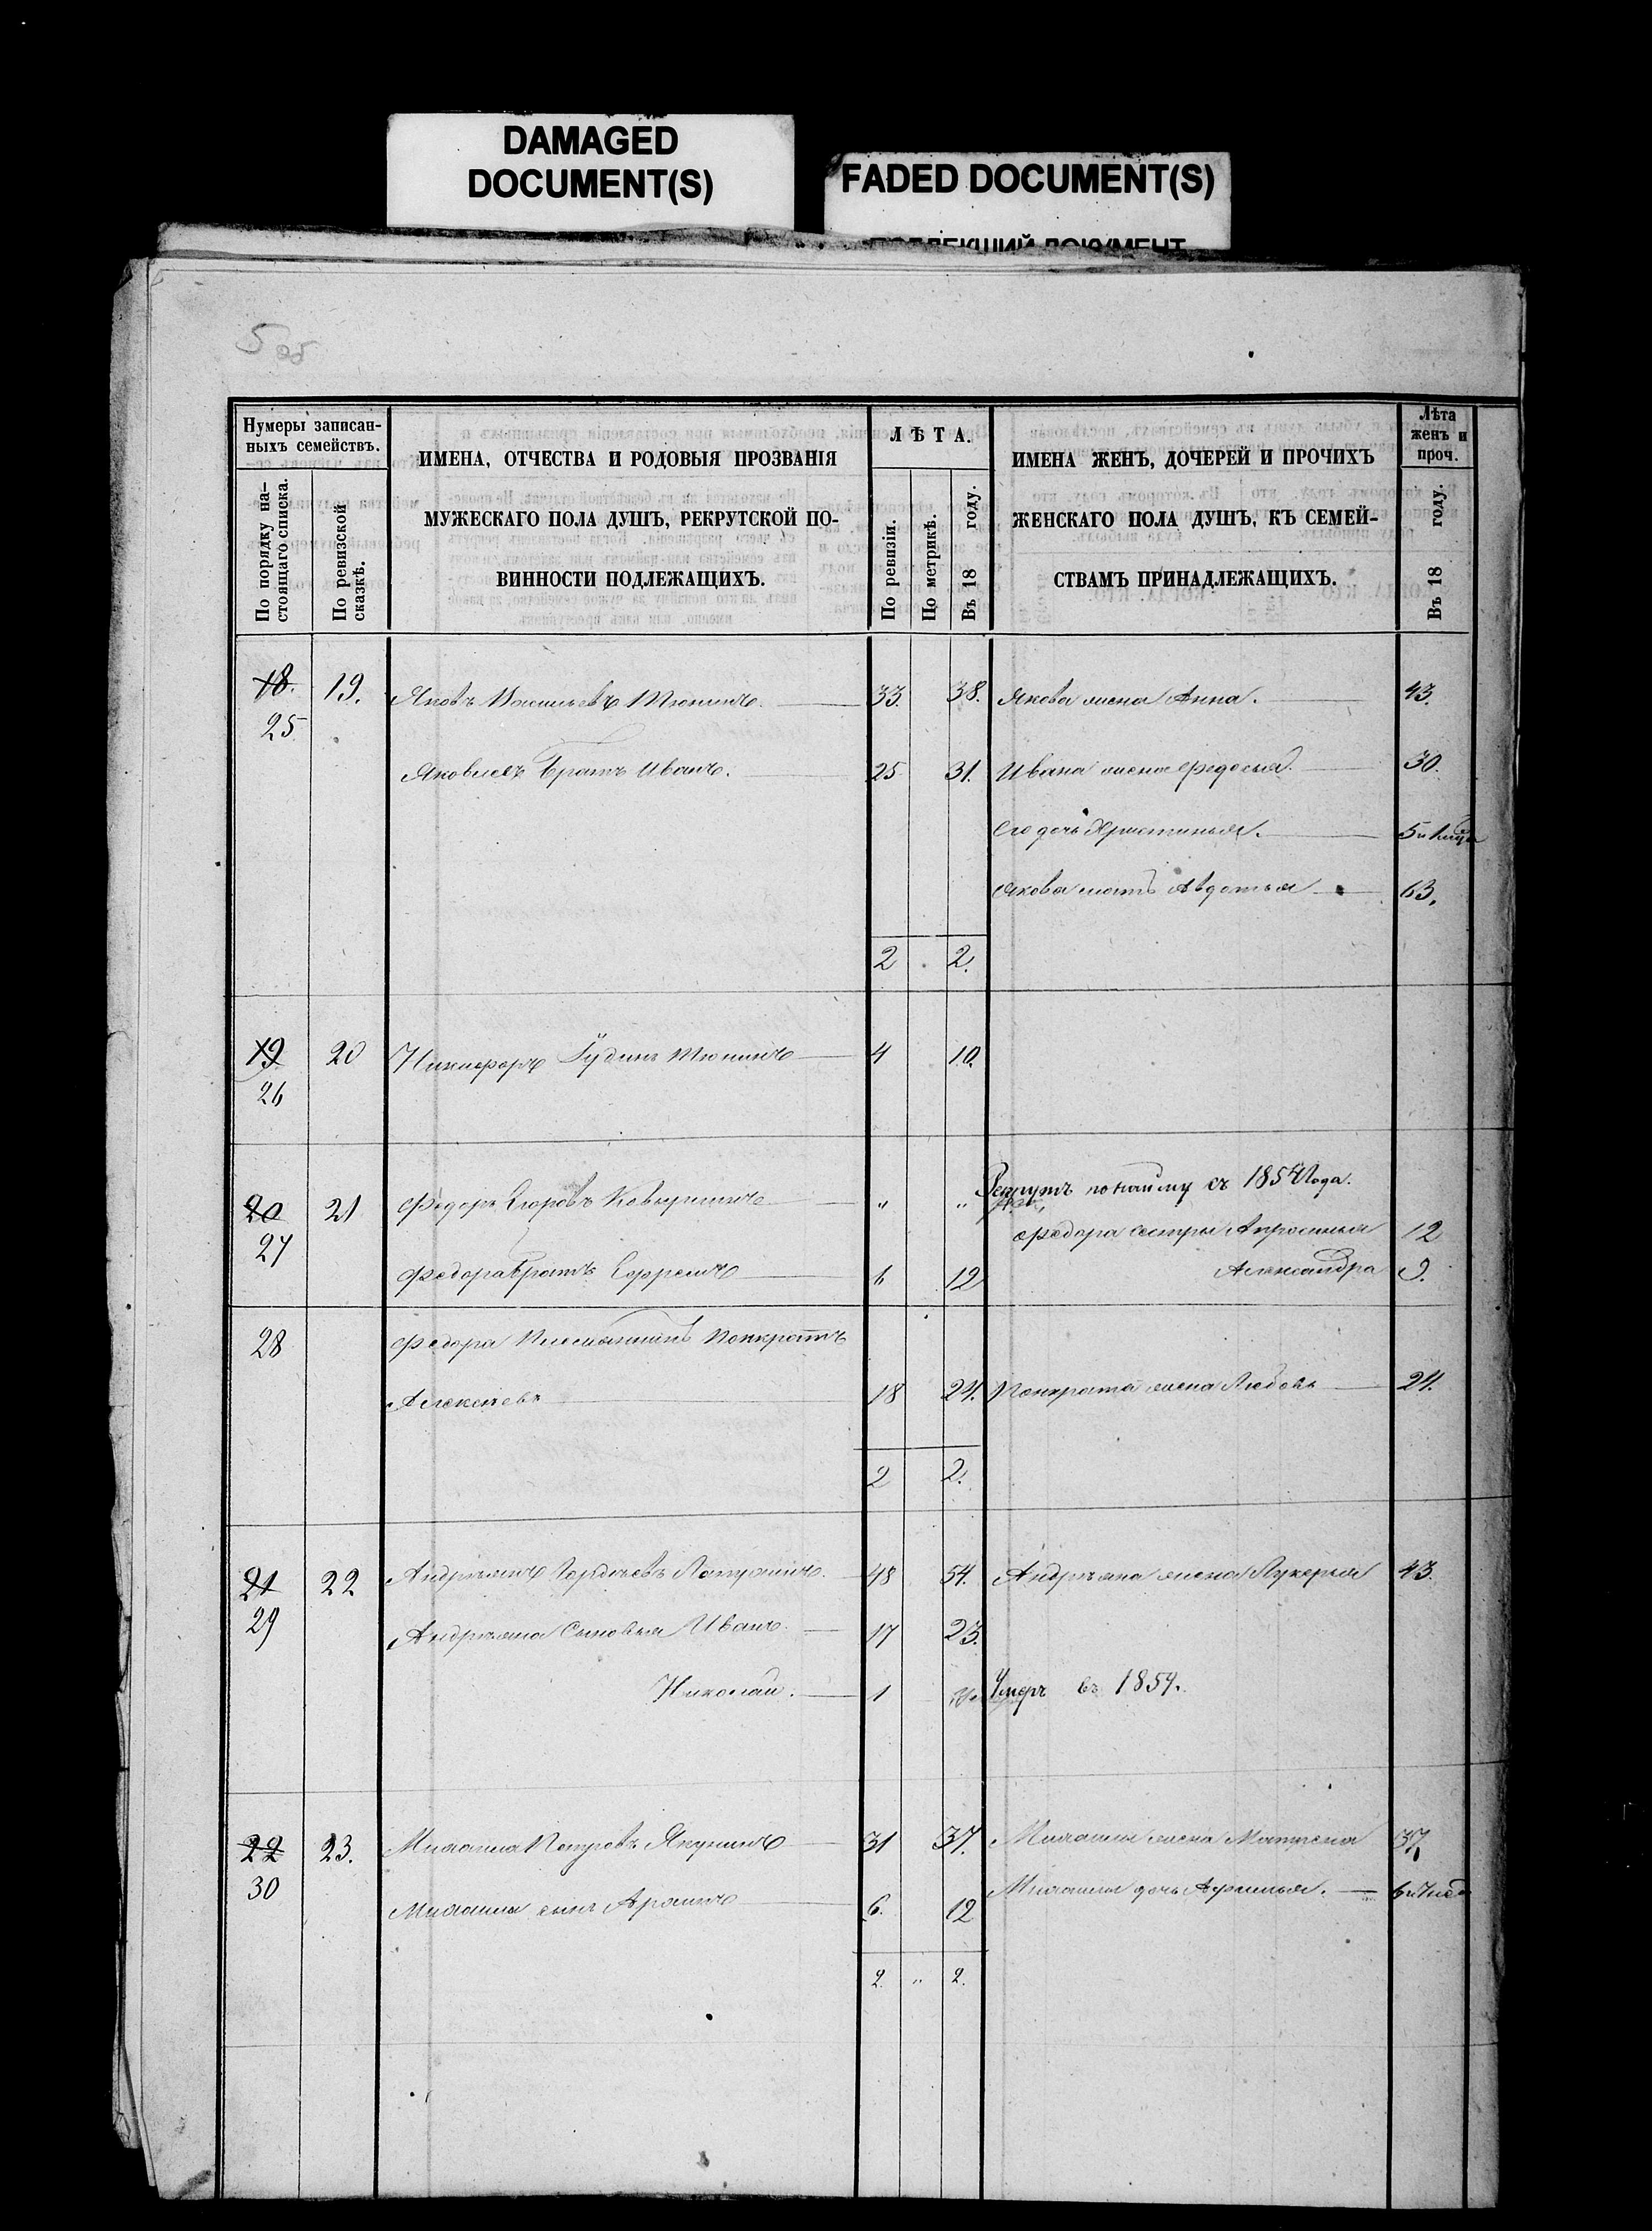 DAMAGED
DOCUMENT(S)
FADED DOCUMENT(S)
Нумеры записан-
ныхъ семействъ.
По порядку на-
стоящаго списка.
По ревизской
сказкѣ.
ИМЕНА, ОТЧЕСТВА И РОДОВЫЯ ПРОЗВАНІЯ
МУЖЕСКАГО ПОЛА ДУШЪ, РЕКРУТСКОЙ ПО-
ВИННОСТИ ПОДЛЕЖАЩИХЪ.
ЛѢТА.
По ревизіи.
По метрикѣ.
Въ 18 году.
ИМЕНА ЖЕНЪ, ДОЧЕРЕЙ И ПРОЧИХЪ
ЖЕНСКАГО ПОЛА ДУШЪ, КЪ СЕМЕЙ-
СТВАМЪ ПРИНАДЛЕЖАЩИХЪ.
Лѣта
женъ и
проч.
Въ 18 году.
18. 19. Яковъ Васильевъ Тюнинъ. 33. 38. Якова жена Анна. 43.
25
Яковлевъ Братъ Иванъ. 25 31. Ивана жена Федосья. 30.
Его дочь Христинья. 5
Якова мать Авдотья 63.
2 2.
19 20 Никифоръ Тюнинъ 4 10.
26
Рекрутъ по найму съ 1854 Года.
20 21 Федоръ Егоровъ " "
27
Федора сестры Апросинья 12
Федора братъ Ефремъ 6 12 Александра 9.
28 Федора Племянникъ Понкратъ
Алексѣевъ 18 24. Понкрата жена Любовь 24.
2 2.
21 22 Андреянъ Гордѣевъ 48 54. Андреяна жена Лукерья 43.
29
Андреяна Сыновья Иванъ. 17 23.
Николай. 1 Умеръ въ 1854.
22 23. Михаила Петровъ Якунинъ 31 37. Михаилы жена Матрена 37,
30
Михаилы дочь Афимья. 6
Михаилы сынъ 6. 12
2. " 2.